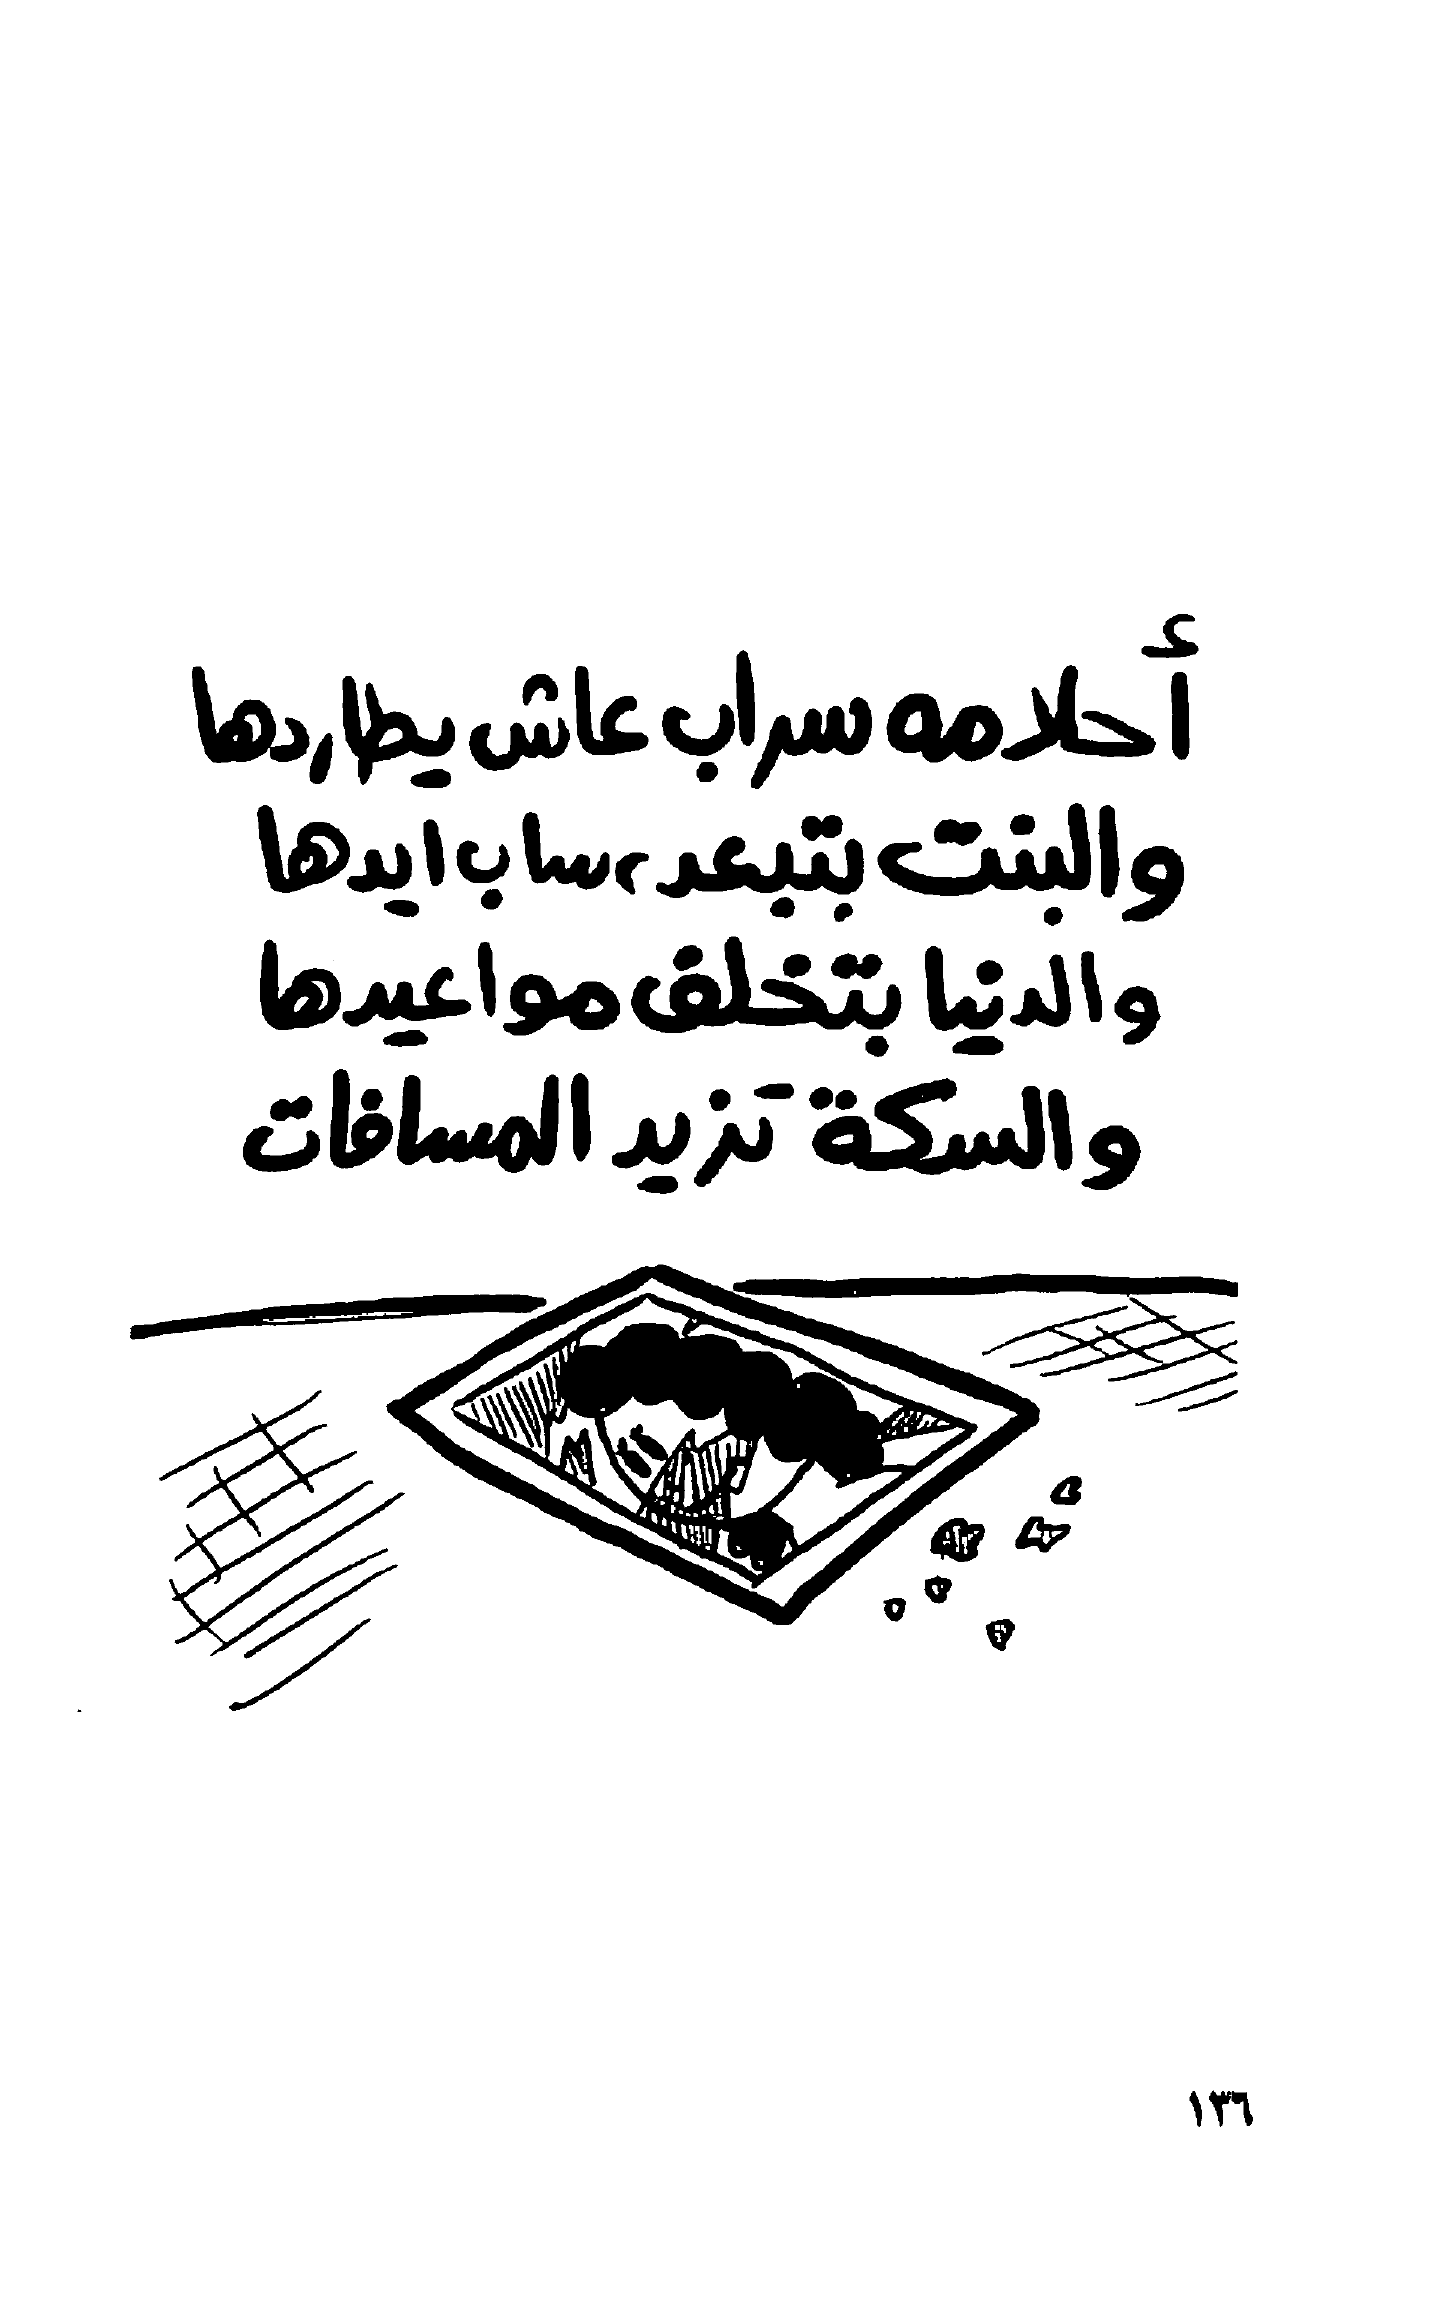 أحلامه سراب عاش يطاردها
والبنت بتبعد، ساب ايدها
والدنيا بتخلف مواعيدها
والسكة تزيد المسافات
١٣٦